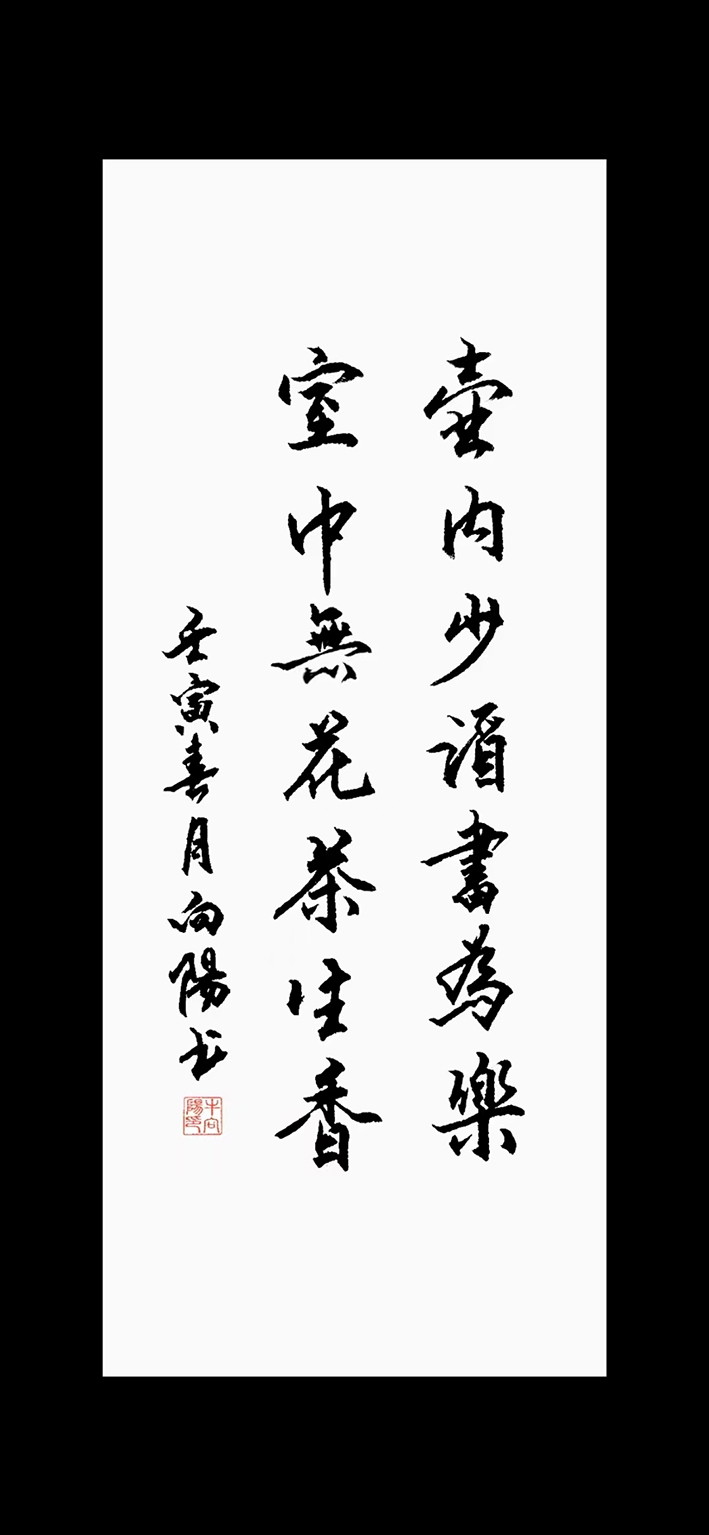 壺內少酒書為樂
室中無花茶生香
壬寅春月向陽书
牛向陽印